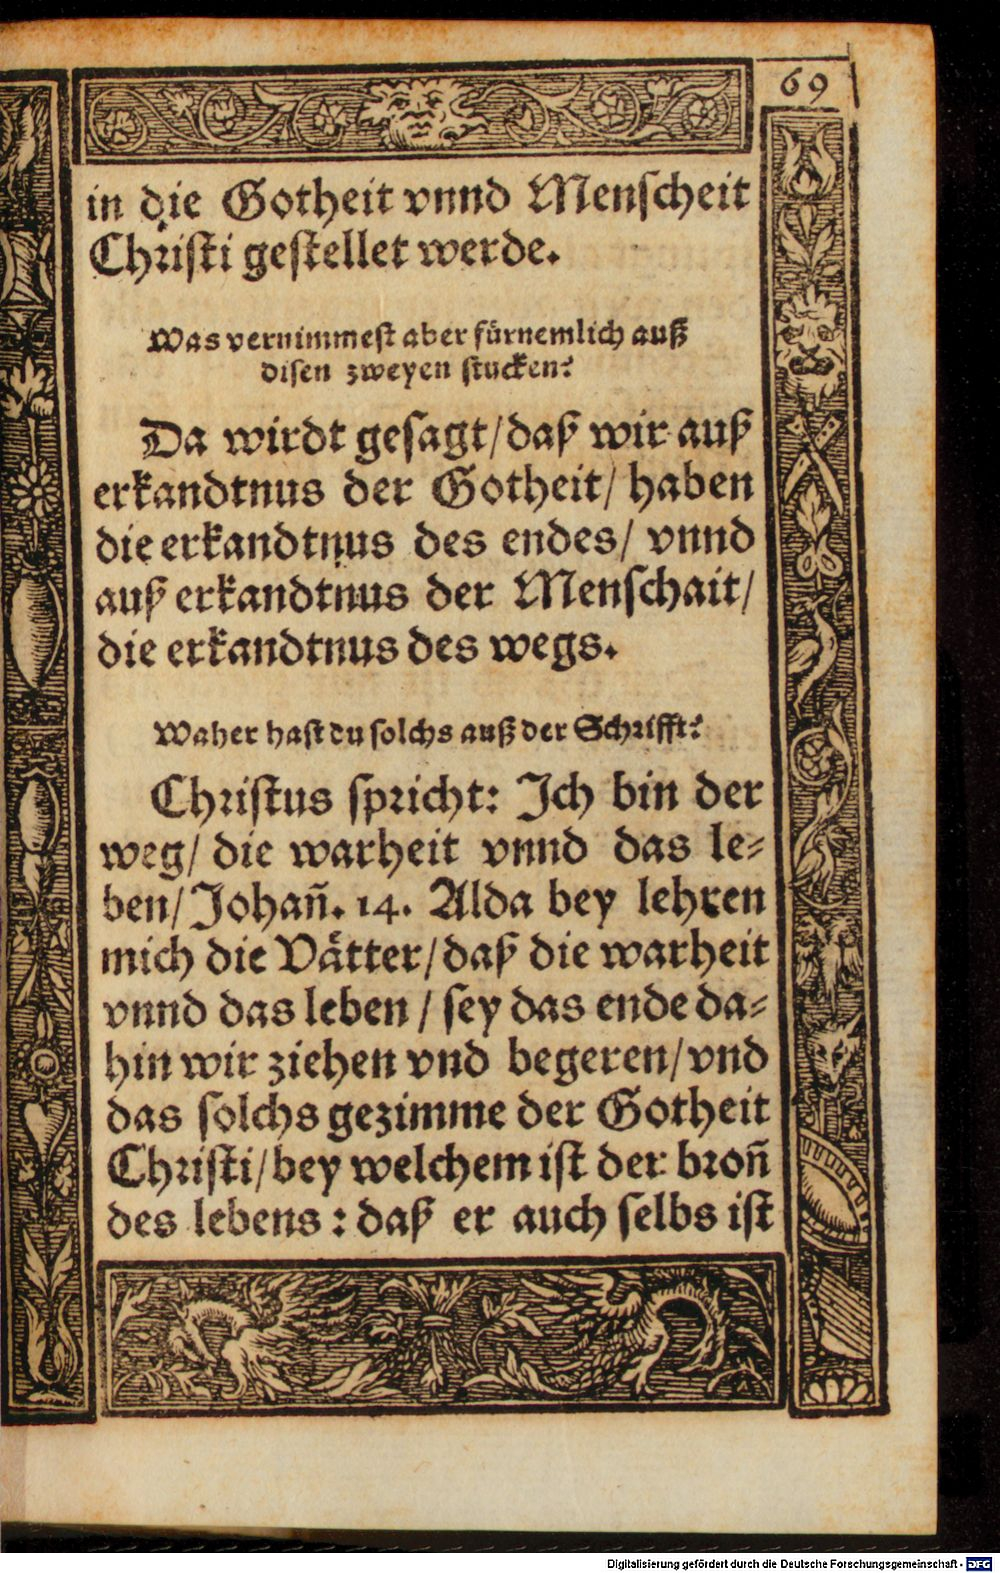 69
in die Gotheit vnnd Menscheit
Christi gestellet werde.
Was vernimmest aber fürnemlich auß
disen zweyen stucken?
Da wirdt gesagt/ daß wir auß
erkandtnus der Gotheit/ haben
die erkandtnus des endes/ vnnd
auß erkandtnus der Menschait/
die erkandtnus des wegs.
Waher hast du solchs auß der Schrifft?
Christus spricht: Ich bin der
weg/ die warheit vnnd das le-
ben/ Johañ. 14. Alda bey lehren
mich die Vätter/ daß die warheit
vnnd das leben / sey das ende da-
hin wir ziehen vnd begeren/ vnd
das solchs gezimme der Gotheit
Christi/ bey welchem ist der broñ
des lebens : daß er auch selbs ist
Digitalisierung gefördert durch die Deutsche Forschungsgemeinschaft - DFG